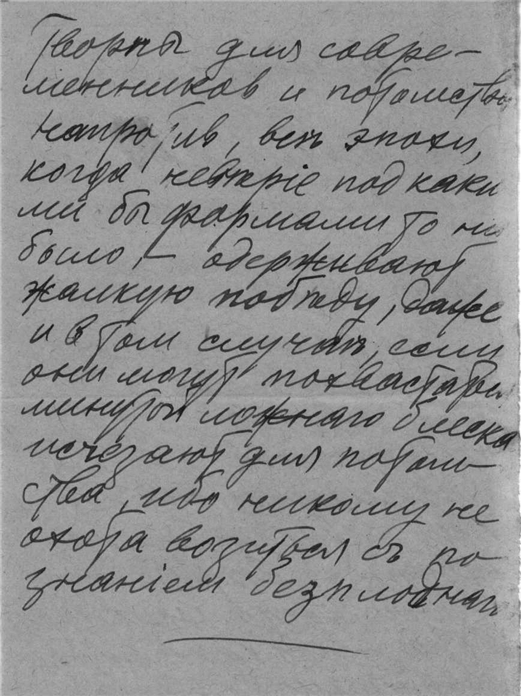 творны для совре-
менников и потомства
напротив, всѣ эпохи,
когда невѣріе под каки
ми бы формами то ни
было, – одерживают
жалкую побѣду, даже
и в том случаѣ, если
они могут похвастать
минутой ложнаго блеска
исчезают для потом-
ства, ибо никому не
охота возиться съ по
знаніем безплоднаго